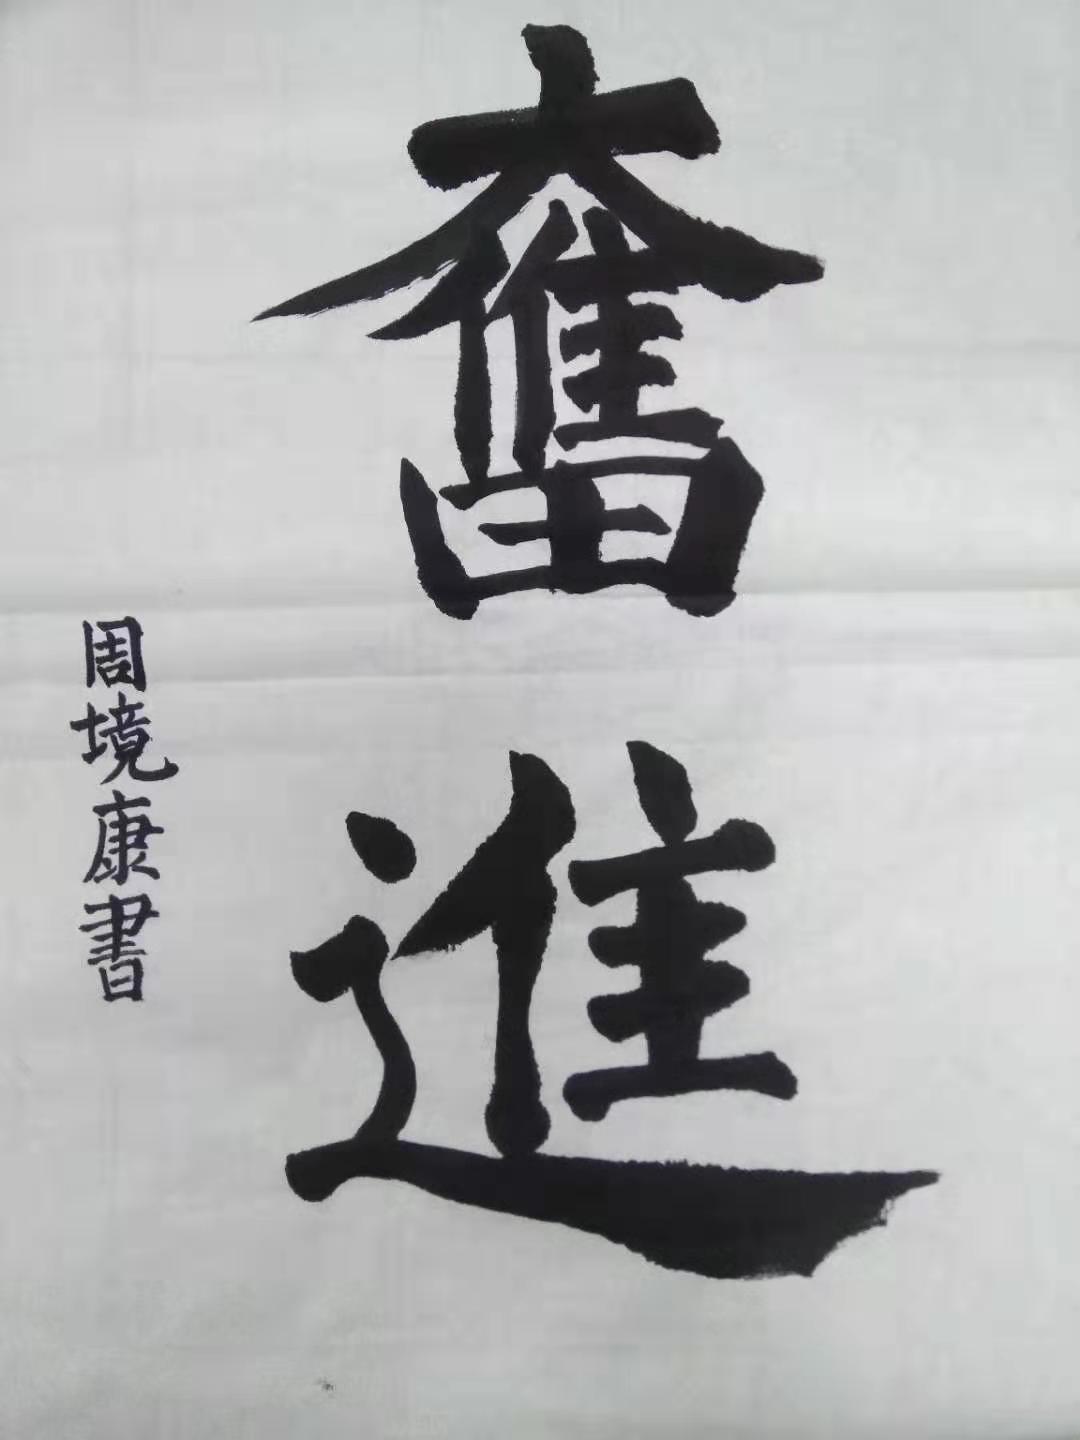 奮進
周境康書